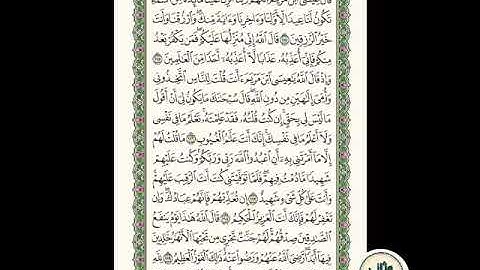 قَالَ عِيسَى ابْنُ مَرْيَمَ اللَّهُمَّ رَبَّنَا أَنزِلْ عَلَيْنَا مَائِدَةً مِّنَ السَّمَاءِ
تَكُونُ لَنَا عِيدًا لِّأَوَّلِنَا وَءَاخِرِنَا وَءَايَةً مِّنكَ وَارْزُقْنَا وَأَنتَ
خَيْرُ الرَّازِقِينَ ١١٤ قَالَ اللَّهُ إِنِّي مُنَزِّلُهَا عَلَيْكُمْ فَمَن يَكْفُرْ بَعْدُ
مِنكُمْ فَإِنِّي أُعَذِّبُهُ عَذَابًا لَّا أُعَذِّبُهُ أَحَدًا مِّنَ الْعَالَمِينَ ١١٥
وَإِذْ قَالَ اللَّهُ يَاعِيسَى ابْنَ مَرْيَمَ ءَأَنتَ قُلْتَ لِلنَّاسِ اتَّخِذُونِي
وَأُمِّيَ إِلَهَيْنِ مِن دُونِ اللَّهِ قَالَ سُبْحَانَكَ مَا يَكُونُ لِي أَنْ أَقُولَ
مَا لَيْسَ لِي بِحَقٍّ إِن كُنتُ قُلْتُهُ فَقَدْ عَلِمْتَهُ تَعْلَمُ مَا فِي نَفْسِي
وَلَا أَعْلَمُ مَا فِي نَفْسِكَ إِنَّكَ أَنتَ عَلَّامُ الْغُيُوبِ ١١٦ مَا قُلْتُ لَهُمْ
إِلَّا مَا أَمَرْتَنِي بِهِ أَنِ اعْبُدُوا اللَّهَ رَبِّي وَرَبَّكُمْ وَكُنتُ عَلَيْهِمْ
شَهِيدًا مَّا دُمْتُ فِيهِمْ فَلَمَّا تَوَفَّيْتَنِي كُنتَ أَنتَ الرَّقِيبَ عَلَيْهِمْ
وَأَنتَ عَلَى كُلِّ شَيْءٍ شَهِيدٌ ١١٧ إِن تُعَذِّبْهُمْ فَإِنَّهُمْ عِبَادُكَ وَإِن
تَغْفِرْ لَهُمْ فَإِنَّكَ أَنتَ الْعَزِيزُ الْحَكِيمُ ١١٨ قَالَ اللَّهُ هَذَا يَوْمُ يَنفَعُ
الصَّادِقِينَ صِدْقُهُمْ لَهُمْ جَنَّاتٌ تَجْرِي مِن تَحْتِهَا الْأَنْهَارُ خَالِدِينَ
فِيهَا أَبَدًا رَّضِيَ اللَّهُ عَنْهُمْ وَرَضُوا عَنْهُ ذَلِكَ الْفَوْزُ الْعَظِيمُ ١١٩ لِلَّهِ